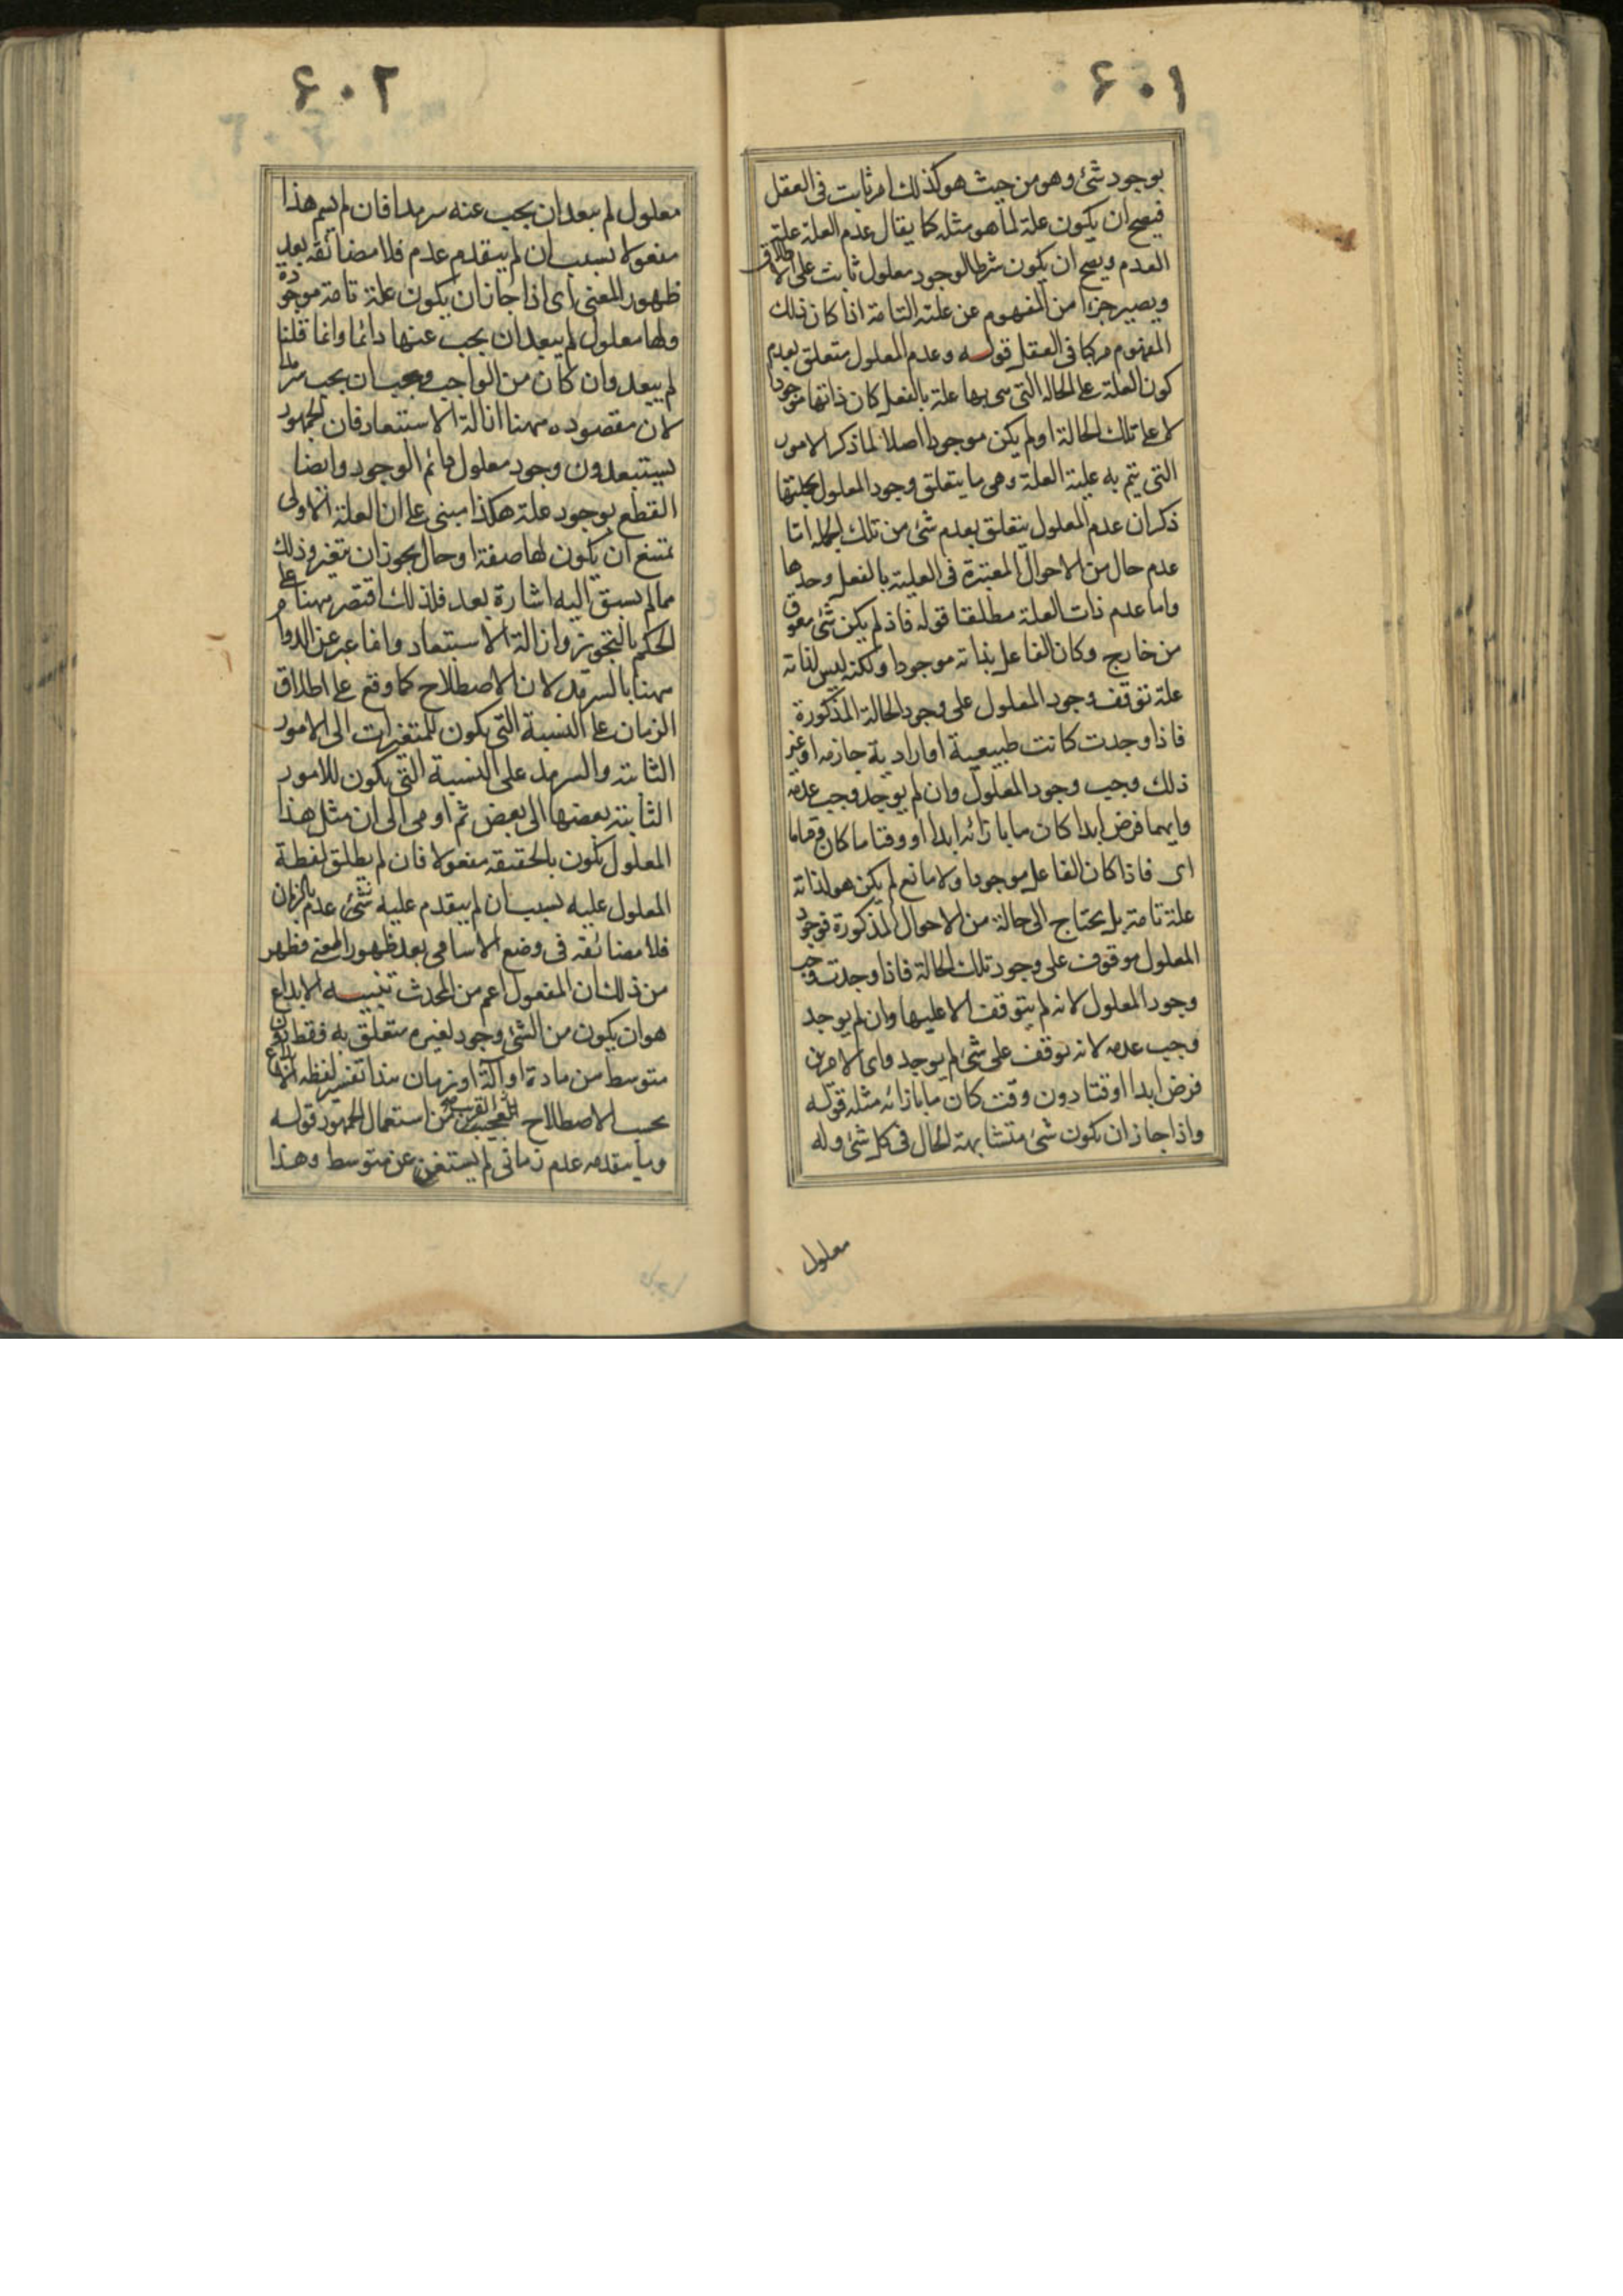 ۶۰۱
بوجود شئ وهو من حيث هو كذلك امر ثابت فى العقل
فيصح ان يكون علة لما هو مثله كما يقال عدم العلة علة
العدم ويصح ان يكون شرطا لوجود معلول ثابت على الاطلاق
ويصير جزءا من المفهوم عن علته التامة اذا كان ذلك
المفهوم مركبا فى العقل قوله وعدم المعلول متعلق بعدم
كون العلة على الحالة التى هى بها علة بالفعل كان ذاتها موجودا
لا على تلك الحالة او لم يكن موجودا اصلا لما ذكر الامور
التى يتم به علية العلة وهى ما يتعلق وجود المعلول بجملتها
ذكر ان عدم المعلول يتعلق بعدم شئ من تلك الجملة اما
عدم حال من الاحوال المعتبرة فى العلية بالفعل وحدها
واما عدم ذات العلة مطلقا قوله فاذ لم يكن شئ معوق
من خارج وكان الفاعل بذاته موجودا ولكنه ليس لذاته
علة توقف وجود المعلول على وجود الحالة المذكورة
فاذا وجدت كانت طبيعية او ارادية جازمه او غير
ذلك وجب وجود المعلول وان لم يوجد وجب عدمه
وايهما فرض ابدا كان ما بازائه ابدا او وقتا ما كان وقتا ما
اى فاذا كان الفاعل موجودا ولا مانع لم يكن هو لذاته
علة تامة بل يحتاج الى حالة من الاحوال المذكورة فوجود
المعلول موقوف على وجود تلك الحالة فاذا وجدت وجب
وجود المعلول لانه لم يتوقف الا عليها وان لم يوجد
وجب عدمه لانه توقف على شئ لم يوجد واى الامرين
فرض ابدا او وقتا دون وقت كان ما بازائه مثله قوله
واذا جاز ان يكون شئ متشابهة الحال فى كل شئ وله
معلول
۶۰۲
معلول لم يبعد ان يجب عنه سرمدا فان لم يسم هذا
مفعولا بسبب ان لم يتقدم عدم فلا مضائقه بعد
ظهور المعنى اى اذا جاز ان يكون علة تامة موجودة
ولها معلول لم يبعد ان يجب عنها دائما وانما قلنا
لم يبعد وان كان من الواجب وجب ان يجب سرمدا
لان مقصوده ههنا ازالة الاستبعاد فان الجمهور
يستبعدون وجود معلول دائم الوجود وايضا
القطع بوجود علة هكذا مبنى على ان العلة الاولى
يمتنع ان يكون لها صفة او حال يجوز ان يتغير وذلك
مما لم يسبق اليه اشارة بعد فلذلك اقتصر ههنا على
الحكم بالتجويز وازالة الاستبعاد وانما عبر عن الدوام
ههنا بالسرمد لان الاصطلاح كما وقع على اطلاق
الزمان على النسبة التى يكون للمتغيرات الى الامور
الثابته والسرمد على النسبة التى يكون للامور
الثابته بعضها الى بعض ثم اومى الى ان مثل هذا
المعلول يكون بالحقيقه مفعولا فان لم يطلق لفظة
المعلول عليه بسبب ان لم يتقدم عليه شئ عدم بالزمان
فلا مضائقه فى وضع الاسامى بعد ظهور المعنى فظهر
من ذلك ان المفعول اعم من المحدث تنبيه الابداع
هو ان يكون من الشئ وجود لغيره متعلق به فقط دون
متوسط من مادة او آلة او زمان هذا تفسير لفظه الابداع
بحسب الاصطلاح من استعمال الجمهور قوله
وما يتقدمه عدم زمانى لم يستغن عن متوسط وهذا